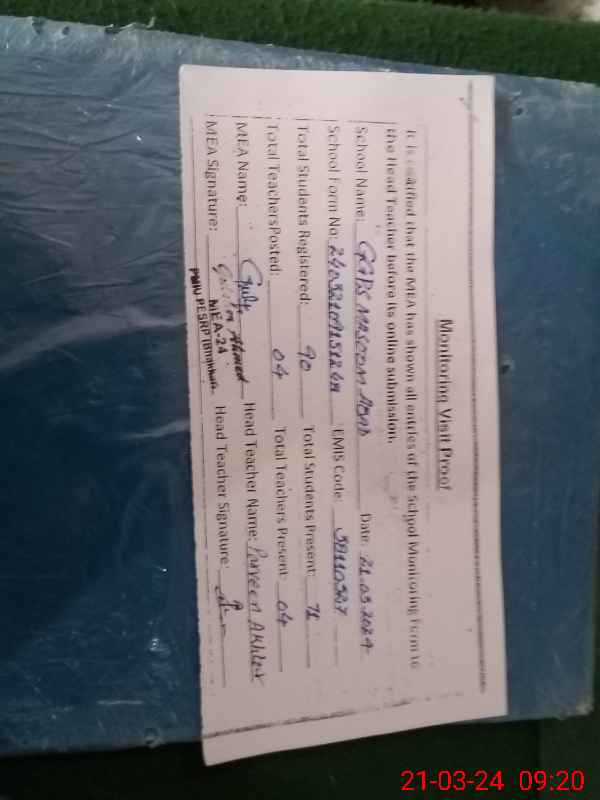 Monitoring Visit Proof
It is certified that the MEA has shown all entries of the School Monitoring Form to
the Head Teacher before its online submission.
School Name: GGPS MASOOM ABAD Date: 21.03.2024
School Form No: EMIS Code: 38110327
Total Students Registered: 90 Total Students Present: 71
Total TeachersPosted: 04 Total Teachers Present: 04
MEA Name: Head Teacher Name: Parveen Akhter
MEA Signature: Head Teacher Signature:
MEA-24
PMIU-PESRP (Bhakkar)
21-03-24 09:20